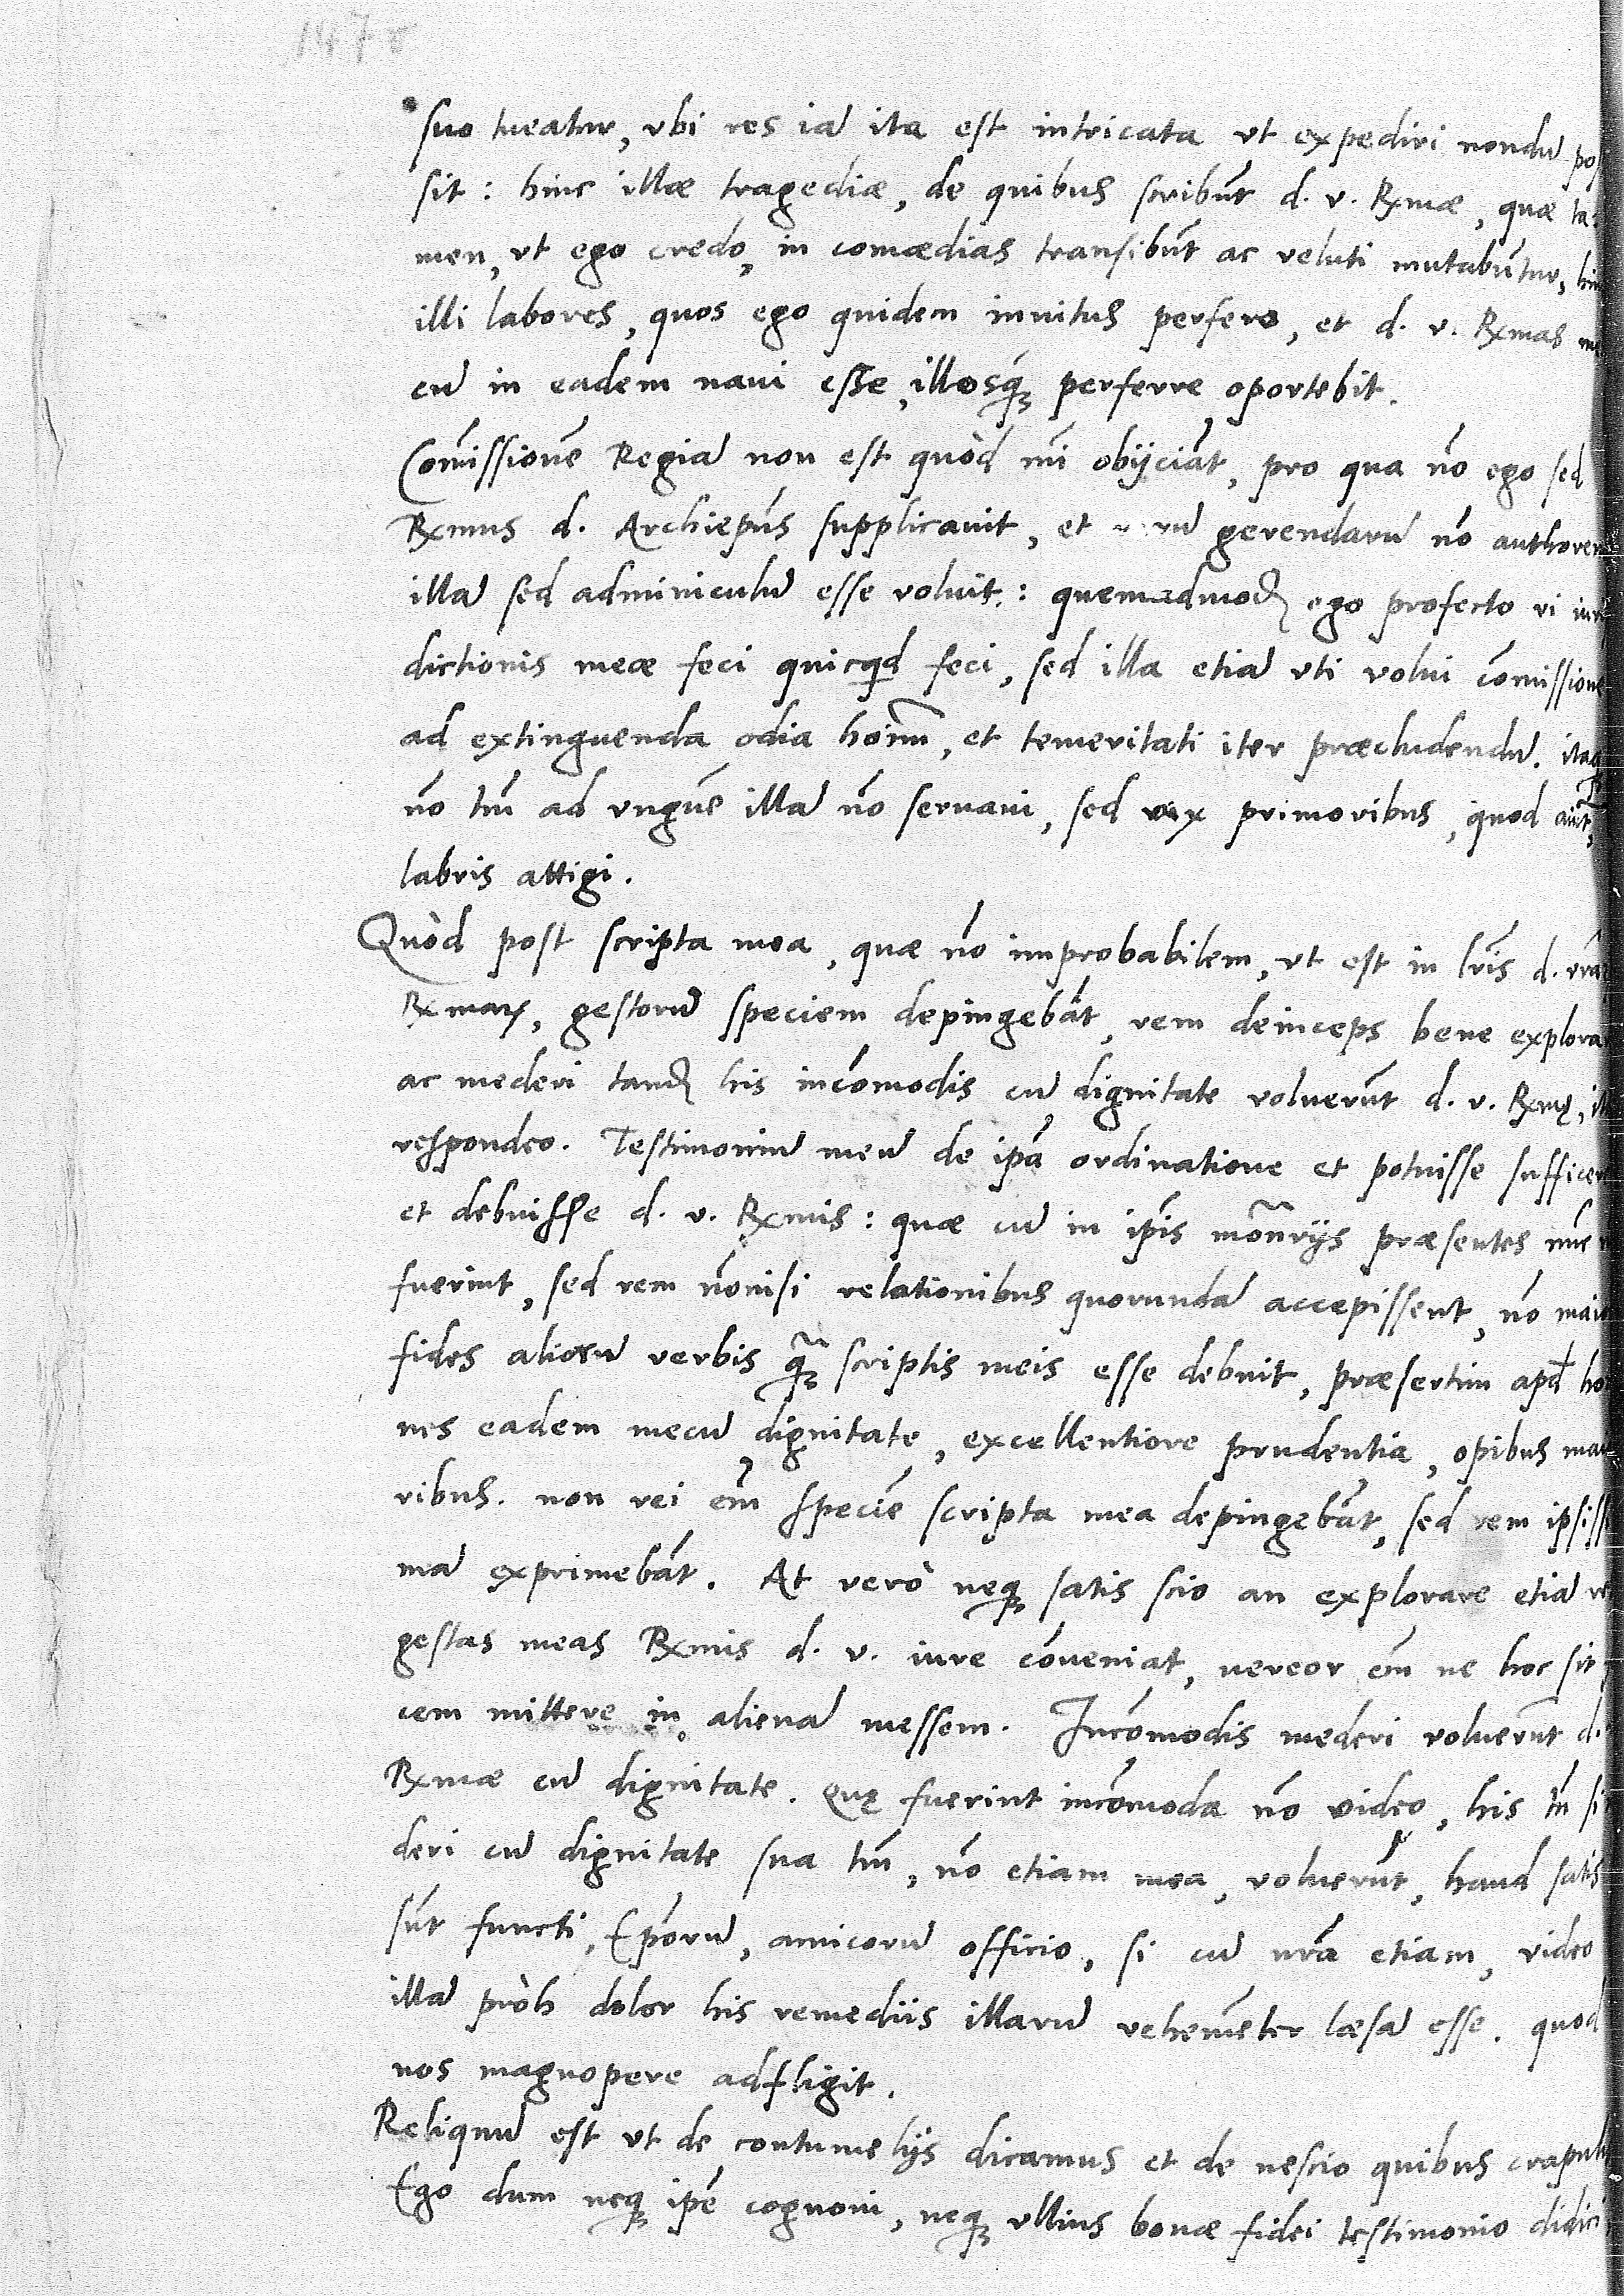 147
suo tueatur, vbi res iā ita est intricata vt expediri nondū pos
sit: hinc illæ tragediæ, de quibus scribūt d. v. Rx̄mæ, quæ ta:
men, vt ego credo, in comædias transibūt ac veluti mutabūtur, hin
illi labores, quos ego quidem inuitus perfero, et d. v. Rx̄mas me
cū in eadem naui esse, illosq̄ꝫ perferre oportebit.
Com̄issionē Regiā non est quòd mi obijciāt, pro qua nō ego sed
Rx̄mus d. Archiep̄us supplicauit, et rerū gerendarū nō authorem
illā sed adminiculū esse voluit: quemadmodꝫ ego profecto vi iuris
dictionis meæ feci quicqd feci, sed illa etiā vti volui com̄issione
ad extinguenda odia hoīm, et temeritati iter præcludendū. itaqꝫ
nō tm̄ ad vnguē illā nō seruaui, sed vix primoribus, quod aiūt,
labris attigi.
Quòd post scripta mea, quæ nō improbabilem, vt est in lr̄is d. vrā
Rx̄marꝝ, gestorū speciem depingebāt, rem deinceps bene explora
ac mederi tandꝫ his incōmodis cū dignitate voluerūt d. v. Rx̄mę, it
respondeo. Testimoniū meū de ip̄a ordinatione et potuisse sufficere
et debuisse d. v. Rx̄mis: quæ cū in ip̄is mōnr̄ijs præsentes nūc
fuerint, sed rem nōnisi relationibus quorundā accepissent, nō maior
fides aliorū verbis q̄ꝫ scriptis meis esse debuit, præsertim apd ho
nes eadem mecū dignitate, excellentiore prudentia, opibus maio
ribus. non rei em̄ speciē scripta mea depingebāt, sed rem ipsissi
mā exprimebāt. At verò neqꝫ satis scio an explorare etiā re
gestas meas Rx̄mis d. v. iure cōueniat, uereor em̄ ne hoc sit
cem mittere in alienā messem. Incōmodis mederi voluerūt d.
Rx̄mæ cū dignitate. Quę fuerint incōmoda nō video, his tn̄ si
deri cū dignitate sua tm̄, nō etiam mea, voluerūt, haud satis
sūt functi, Ep̄orū, amicorū officio, si cū nr̄a etiam, video
illā pròh dolor his remediis illarū vehemēter læsā esse. quod
nos magnopere adfligit.
Reliquū est vt de contumelijs dicamus et de nescio quibus crapul
Ego dum neqꝫ ip̄e cognoui, neqꝫ vllius bonæ fidei testimonio didici